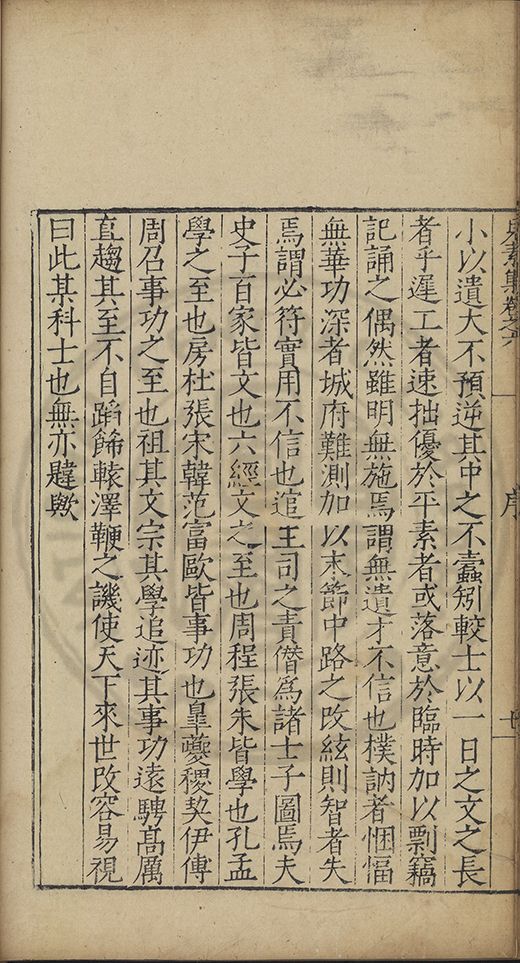 集卷之六 序
小以遺大不預逆其中之不蠹矧較士以一日之文之長
者乎遲工者速拙優於平素者或落意於臨時加以剽竊
記誦之偶然雖明無施焉謂無遺才不信也樸訥者悃愊
無華功深者城府難測加以末節中路之改絃則智者失
焉謂必符實用不信也逭主司之責僭為諸士子圖焉夫
史子百家皆文也六經文之至也周程張朱皆學也孔孟
學之至也房杜張宋韓范富歐皆事功也臯夔稷契伊傅
周召事功之至也祖其文宗其學追迹其事功遠騁高厲
直趨其至不自蹈餙轅澤鞭之譏使天下來世改容易視
曰此某科士也無亦韙歟